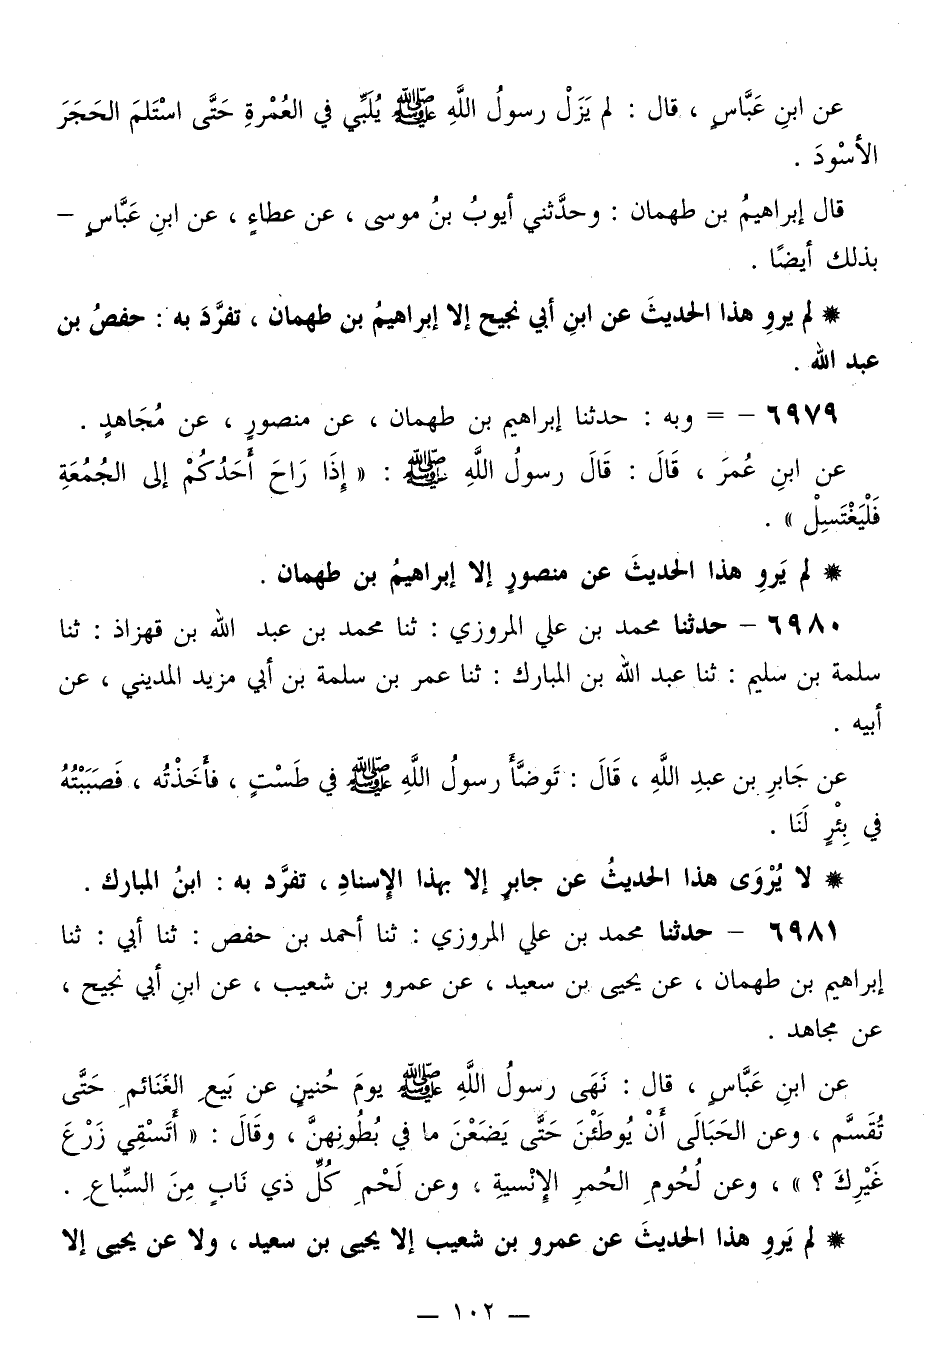 عن ابنِ عَبَّاسٍ ، قال : لم يَزَلْ رسولُ اللَّهِ ﷺ يُلَبِّي في العُمْرةِ حَتَّى اسْتَلمَ الحَجَرَ
الأسْودَ .
قال إبراهيمُ بن طهمان : وحدَّثني أيوبُ بنُ موسى ، عن عطاءٍ ، عن ابنِ عَبَّاسٍ –
بذلك أيضًا .
* لم يروِ هذا الحديثَ عن ابنِ أبي نجيح إلا إبراهيمُ بن طهمان ، تفرَّدَ به : حفصُ بن
عبد الله .
٦٩٧٩ – = وبه : حدثنا إبراهيم بن طهمان ، عن منصورٍ ، عن مُجَاهدٍ .
عن ابنِ عُمرَ ، قَالَ : قَالَ رسولُ اللَّهِ ﷺ : « إِذَا رَاحَ أَحَدُكُمْ إلى الجُمُعَةِ
فَلْيَغْتَسِلْ » .
* لم يَروِ هذا الحديثَ عن منصورٍ إلا إبراهيمُ بن طهمان .
٦٩٨٠ – حدثنا محمد بن علي المروزي : ثنا محمد بن عبد الله بن قهزاذ : ثنا
سلمة بن سليم : ثنا عبد الله بن المبارك : ثنا عمر بن سلمة بن أبي مزيد المديني ، عن
أبيه .
عن جَابرِ بن عبدِ اللَّهِ ، قَالَ : تَوضَّأَ رسولُ اللَّهِ ﷺ في طَسْتٍ ، فأَخَذْتُه ، فَصَبَبْتُهُ
في بِئْرٍ لَنَا .
* لا يُرْوَى هذا الحديثُ عن جابرٍ إلا بهذا الإسنادِ ، تفرَّد به : ابنُ المبارك .
٦٩٨١ – حدثنا محمد بن علي المروزي : ثنا أحمد بن حفص : ثنا أبي : ثنا
إبراهيم بن طهمان ، عن يحيى بن سعيد ، عن عمرو بن شعيب ، عن ابنِ أبي نجيح ،
عن مجاهد .
عن ابنِ عَبَّاسٍ ، قال : نَهَى رسولُ اللَّهِ ﷺ يومَ حُنينٍ عن بَيعِ الغَنائمِ حَتَّى
تُقَسَّم ، وعن الحَبَالَى أَنْ يُوطَئْنَ حَتَّى يَضَعْنَ ما في بُطُونِهنَّ ، وقَالَ : « أَتَسْقِي زَرْعَ
غَيْرِكَ ؟ » ، وعن لُحُومِ الحُمرِ الإنْسيةِ ، وعن لَحْمِ كُلِّ ذي نَابٍ مِنَ السِّباعِ .
* لم يَروِ هذا الحديثَ عن عمرو بن شعيب إلا يحيى بن سعيد ، ولا عن يحيى إلا
— ١٠٢ —